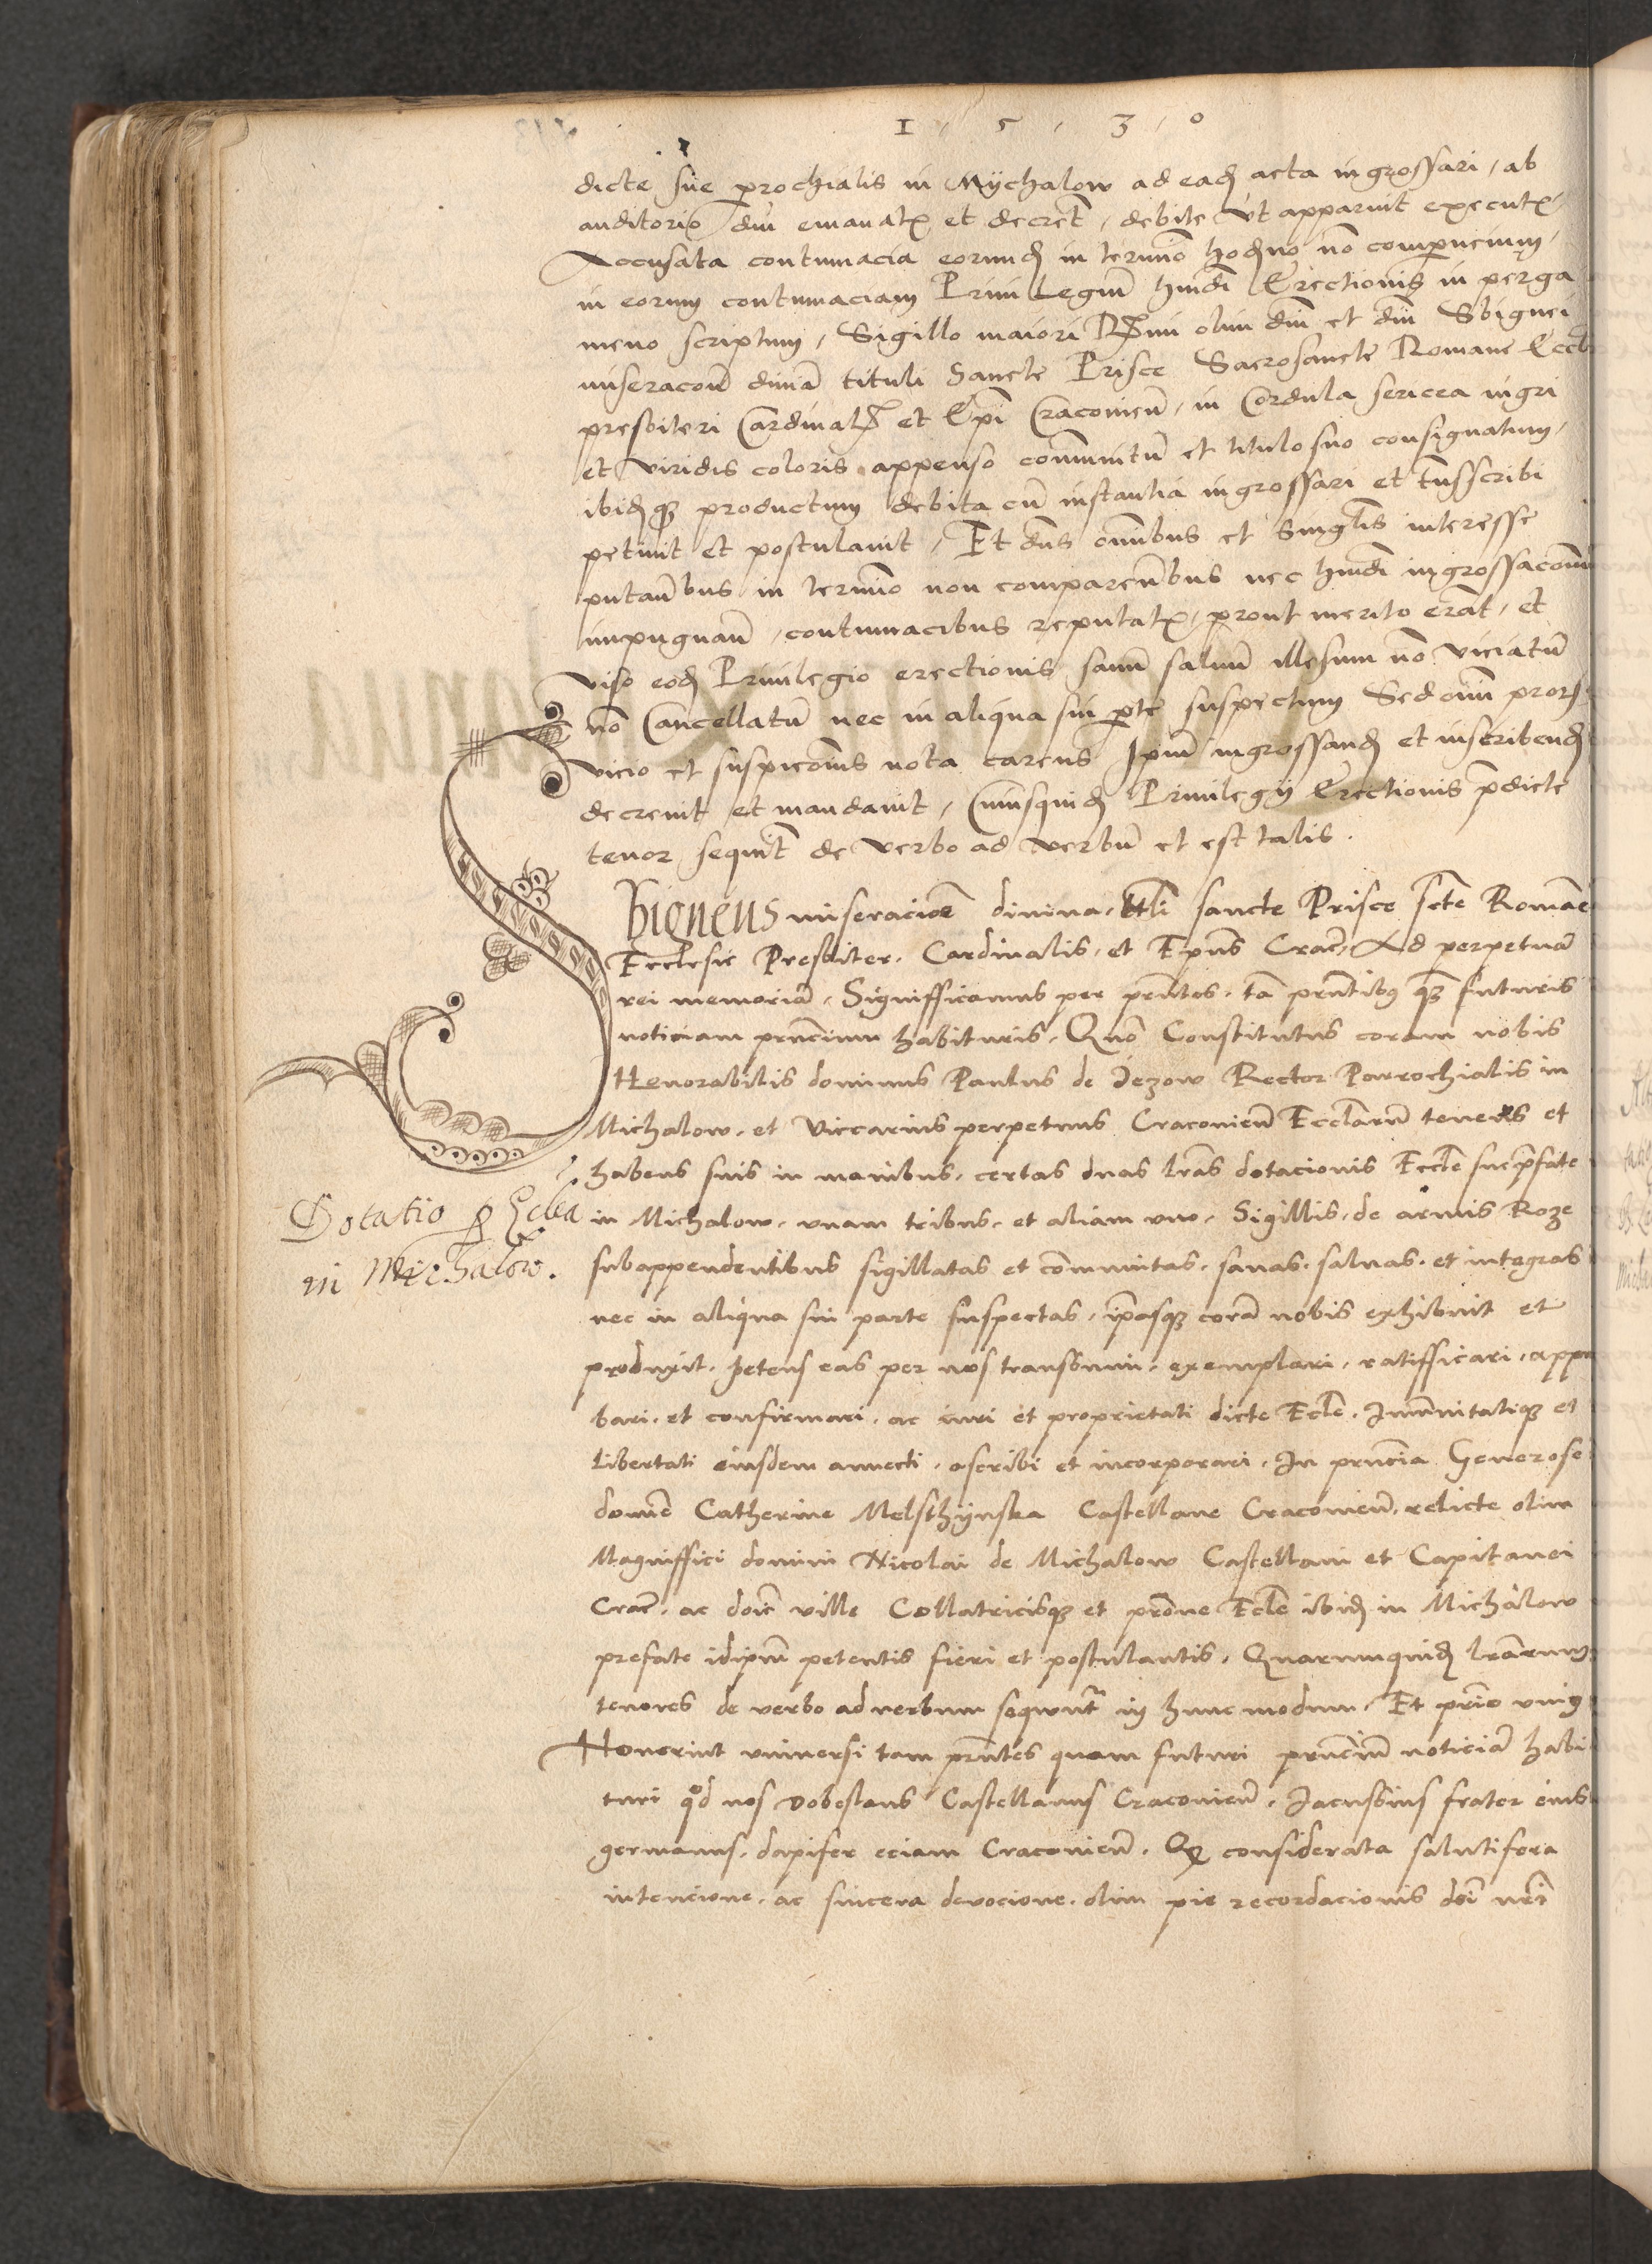 1 · 5 · 3 · 0
dicte sue prochialis in Mychalow ad eadē acta ingrossari, ab
auditorio dni emanatꝫ et decret, debite ut apparuit executꝫ
Accusata contumacia eorundē in termino hodierno nō comparencium,
in eorum contumaciam Priuilegium hmōi Erectionis in perga
meno scriptum, Sigillo maiori Rmi olim dni et dni Sbignei
miseracōne diuīa tituli Sancte Prisce Sacrosancte Romane Eccl
presbiteri Cardinalꝫ et Epi Cracouien̄, in Cordula sericea nigri
et viridis coloris appenso communitū et titulo suo consignatum,
ibidēqꝫ productum debita cū instantia ingrossari et transscribi
petiuit et postulauit, Et dns omnibus et singlis interesse
putantibus in termino non comparentibus nec hmōi ingrossacōni
impugnan̄, contumacibus reputatꝫ, prout merito erāt, et
viso eodē Priuilegio erectionis sanū saluū illesum nō viciatū
nō Cancellatū nec in aliqua sui pte suspectum Sed omni prorsꝫ
vicio et suspicōnis nota carens Ipm̄ ingrossandē et inscribendē
decreuit et mandauit, Cuiusquidē Priuilegij Erectionis pdicte
tenor sequit̄ de verbo ad verbū et est talis.
Sbigneus miseracioē diuina, ttli sancte Prisce scte Romāe
Ecclesie Presbiter Cardinalis, et Epūs Crac̄, Ad perpetuā
rei memoriā, Signifficamus per pn̄tes, tā pn̄tibꝰ qꝫ futuris
noticiam pn̄cium habituris, Quō Constitutus coram nobis
Honorabilis dominus Paulus de Jezow Rector Parrochialis in
Michalow, et Viccarius perpetuus Cracouien̄ Eccl̄arū tenens et
habens suis in manibus, certas duas lr̄as dotacionis Eccl̄e sue p̄fate
in Michalow, vnam tribus, et aliam vno, Sigillis, de armis Roze
subappendentibus sigillatas et cōmunitas, sanas, saluas, et integras
nec in aliqua sui parte suspectas, ip̄asqꝫ corā nobis exhibuit et
produxit, petens eas per nos transsumi, exemplari, ratifficari, appro
bari, et confirmari, ac iuri et proprietati dicte Eccl̄e, Immunitatiqꝫ et
libertati eiusdem annecti, ascribi et incorporari, In pn̄cia Generose
domē Catherine Melschtynska Castellane Cracouien̄, relicte olim
Magniffici domini Nicolai de Michalow Castellani et Capitanei
Crac̄, ac doīe ville Collatricisqꝫ et pr̄one Eccl̄e ibidē in Michalow
prefate idipm̄ petentis fieri et postulantis, Quarumquidē lr̄arum
tenores de verbo ad verbum sequnt̄ in hunc modum, Et prīo vniꝰ
Nouerint vniuersi tam pn̄tes quam futuri pn̄cium noticiā habi
turi qd nos Dobeslaus Castellanus Cracouien̄, Jacussius frater eius
germanus, dapifer eciam Cracouien̄, Qꝫ considerata salutifera
intencione, ac sincera deuocione, olim pie recordacionis dni nr̄i
Dotatio p Eccla
in Michalow.